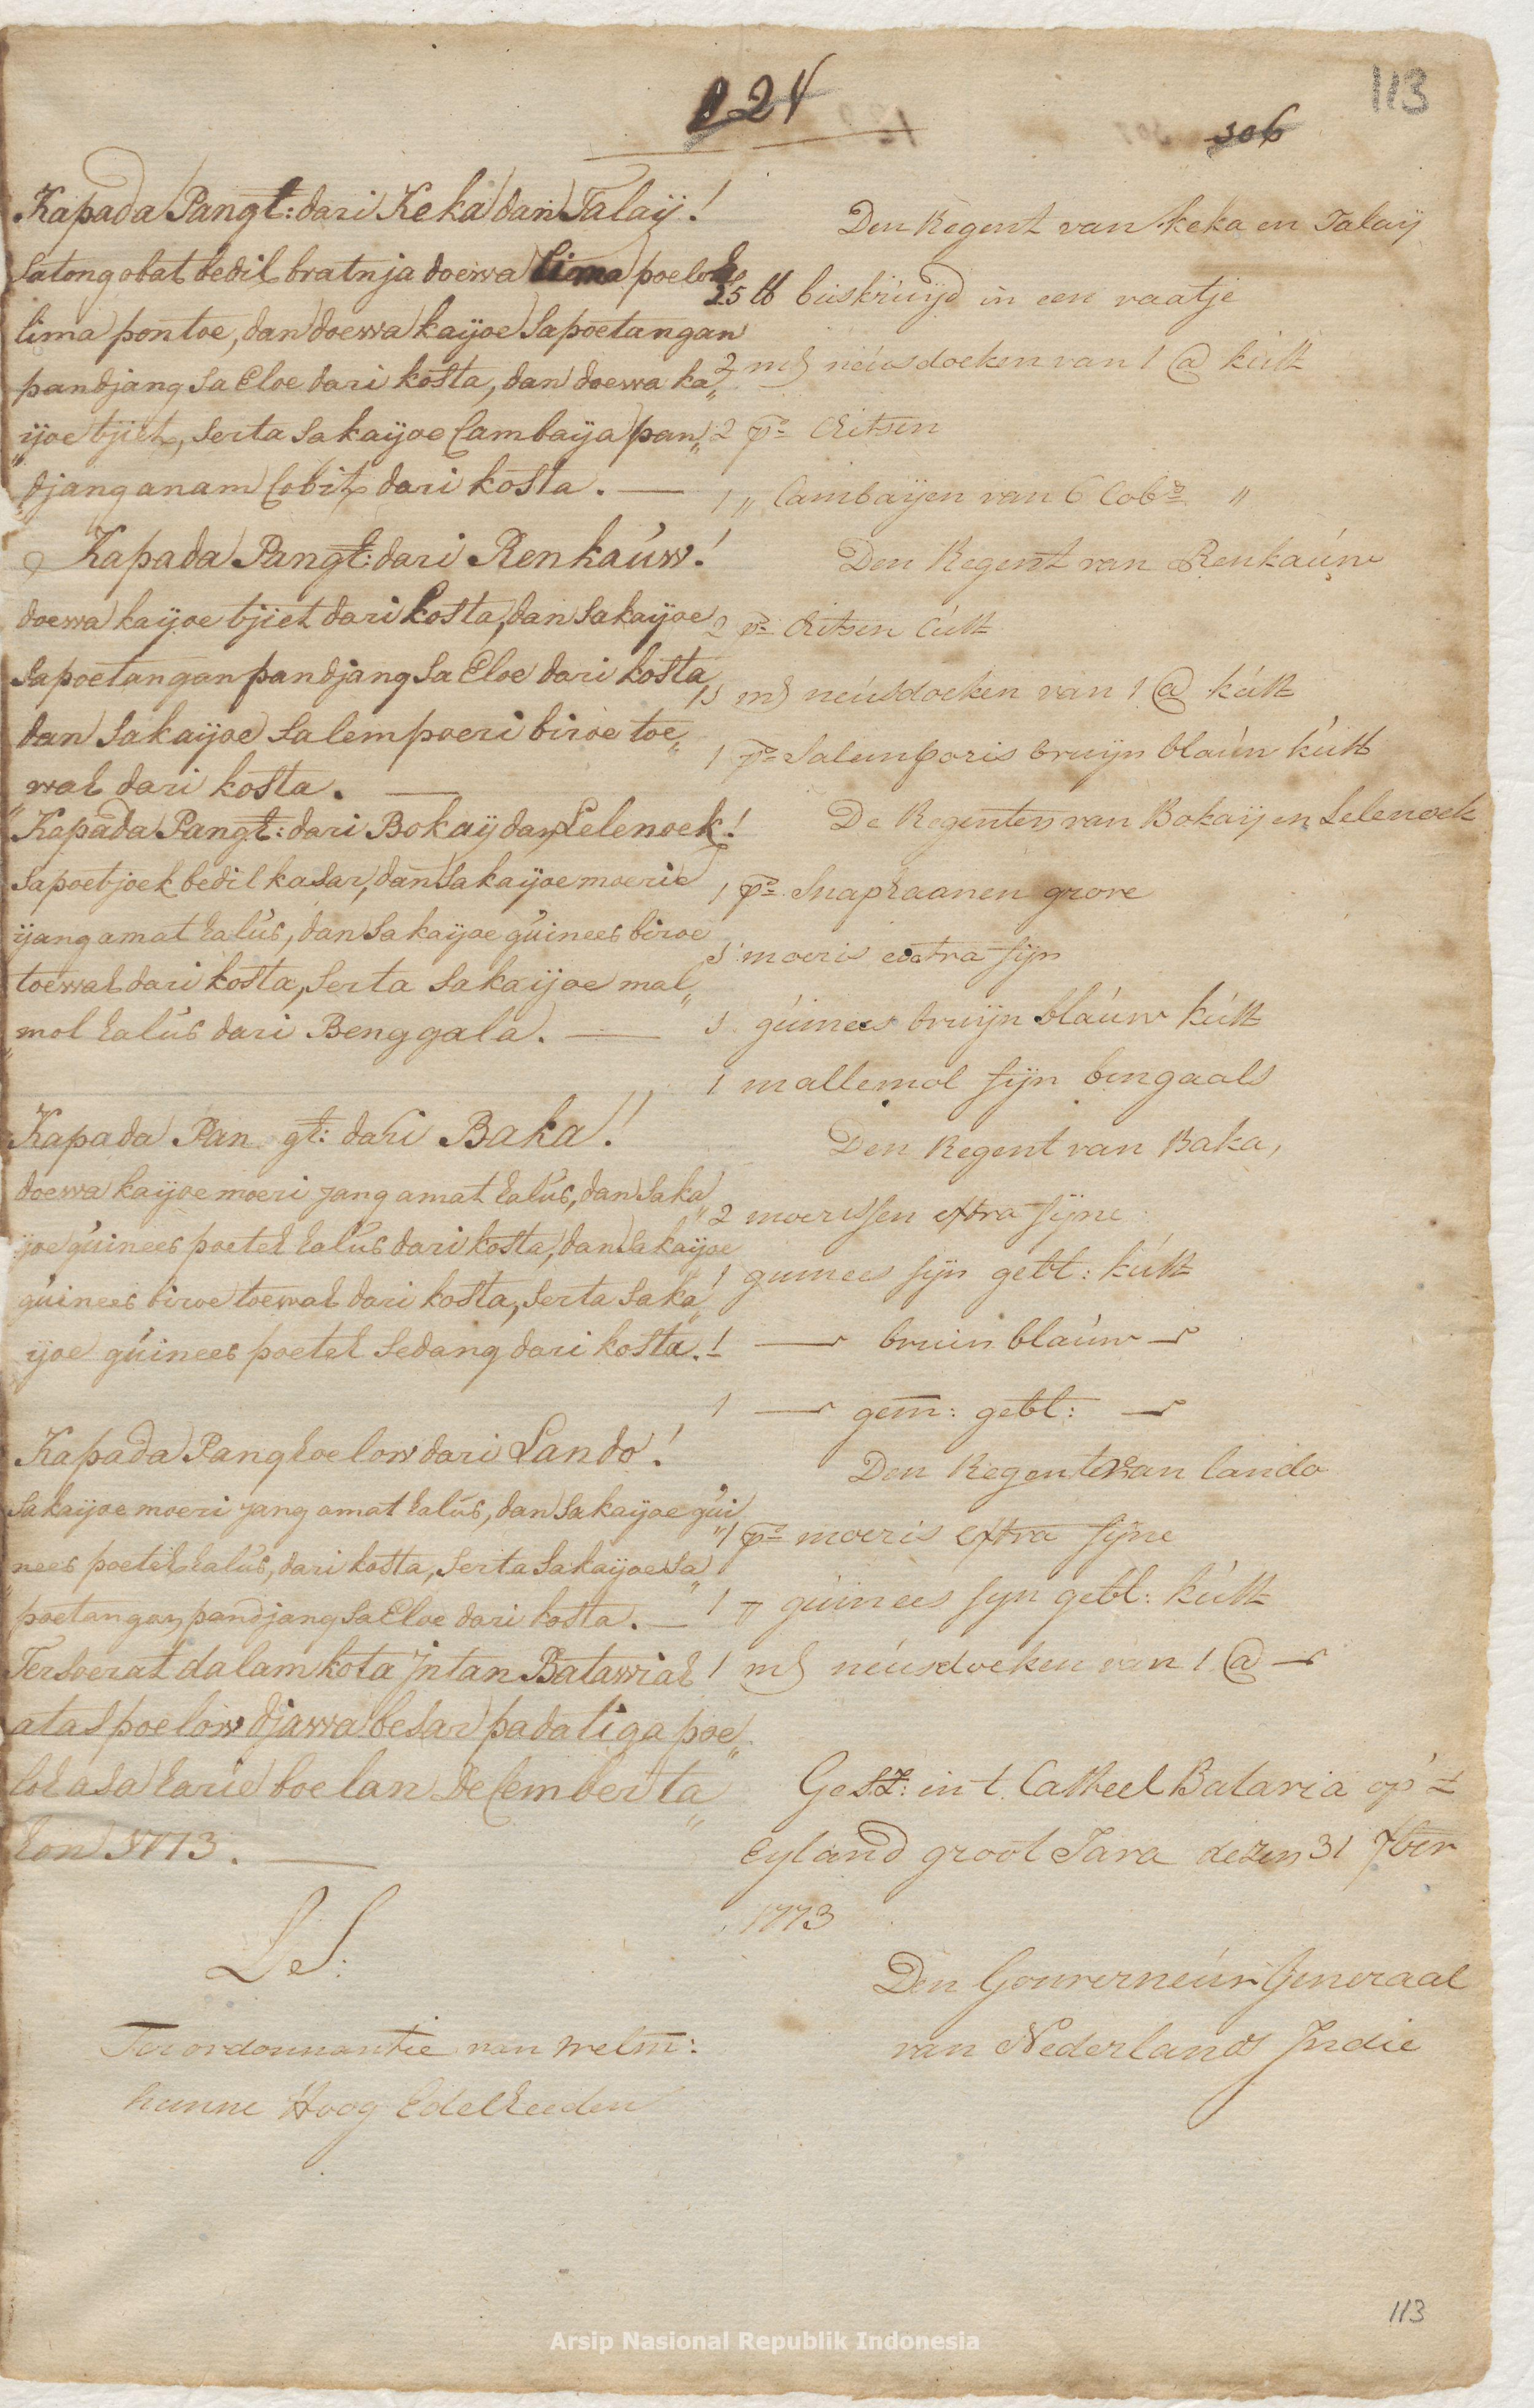 113
124
306
Kapada Pangt: dari Keka dan Talaij!
Satong obat bedil bratnja doewa lima poeloh
lima pontoe, dan doewa kaijoe Sapoetangan
pandjang Sa Eloe dari kosta, dan doewa ka„
„ijoe tjiet, serta Sakaijoe Cambaija pan„
„djang anam Cobit dari kosta. —
Kapada Pangt: dari Renkaúw!
doewa kaijoe tjiet dari kosta, dan Sakaijoe
Sapoetangan pandjang Sa Eloe dari kosta
dan Sakaijoe Salempoeri biroe toe„
„wah dari kosta. —
Kapada Pangt: dari Bokaij dan Lelenoek!
Sapoetjoek bedil kasar, dan Sakaijoe moerie
ijang amat halús, dan Sakaijoe gúinees biroe
toewah dari kosta, Serta Sakaijoe mal„
„mol halús dari Benggala. —
Kapada Pan gt: dari Baka!
doewa kaijoe moeri jang amat halús, dan Saka„
„ijoe gúinees poeteh halús dari kosta, dan Sakaijoe
gúinees biroe toewah dari kosta, Serta Saka„
ijoe gúinees poeteh Sedang dari kosta.
Kapada Panghoelow dari Lando!
Sakaijoe moeri jang amat halús, dan Sakaijoe gúi„
„nees poeteh halús, dari kosta, Serta Sakaijoe Sa„
„poetangan pandjang Sa Eloe dari kosta. —
Tersoerat dalam kota Jntan Batawiah
atas poelow djawa besar pada tiga poe„
loh asa harie boelan December ta„
hon 1773. —
L S:
Ter ordonnantie van welm:
hunne Hoog Edelheeden
Den Regent van Keka en Talaij
25 lb búskrúijd in een vaatje
2 mS neúsdoeken van 1 @ kútt
2 ps Chitsen
1 „ Cambaijen van 6 Cobs „
Den Regent van Renkaúw
2 ps Chitsen Cútt
1 mS neúsdoeken van 1 @ kútt
1 ps Salemporis bruijn blaúw kútt
De Regenten van Bokaij en Lelenoek
1 ps Snaphaanen grove
1 moeris extra fijn
1 gúinees bruijn bláúw kútt
1 mallemol fijn bengaals
Den Regent van Baka,
2 moerissen extra fijne
1 guinees fijn gebl: kútt
1 — bruin blaúw —
1 — gem: gebl: —
Den Regent van Lando
1 ps moeris extra fijne
1 „ gúinees fijn gebl: kútt
1 mS neúsdoeken van 1 @ —
Gesz: in 't Casteel Batavia op 't
Eyland groot Java dezen 31 Xber
1773
Den Gouverneúr Generaal
van Nederlands Indie
113
Arsip Nasional Republik Indonesia